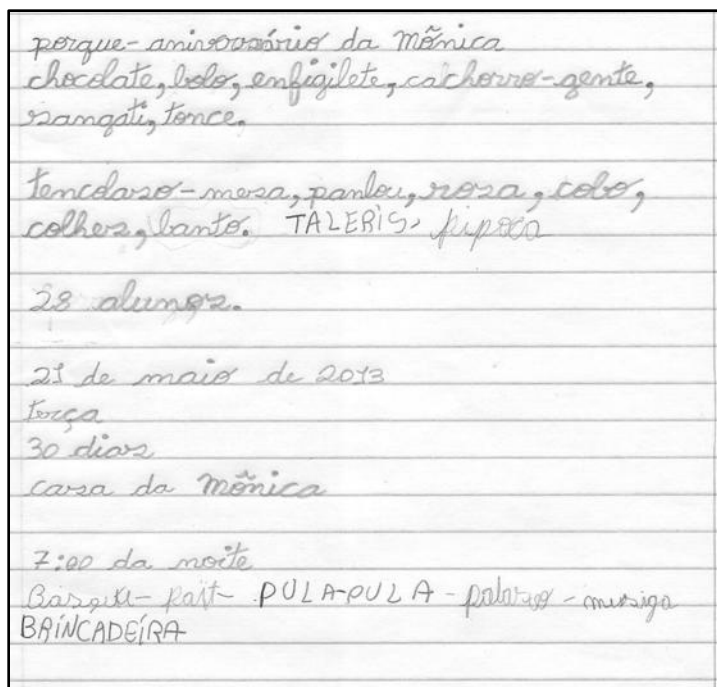 porque - anivosário da Mõnica
chocolate, bolo, enfigilete, cachorro-gente,
sangati, tonce,
tencolaso - mesa, panlou, rosa, cobo,
colhes, banto. TALERIS, pipoca
28 alunos.
21 de maio de 2013
terça
30 dias
casa da Mõnica
7:00 da noite
- PULA-PULA - palaso - musiga
BRINCADEIRA